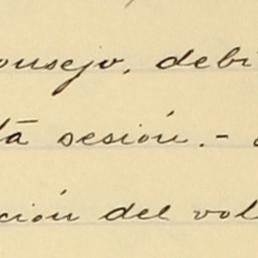 onsejo, debi
ta sesión.-
ción del vol